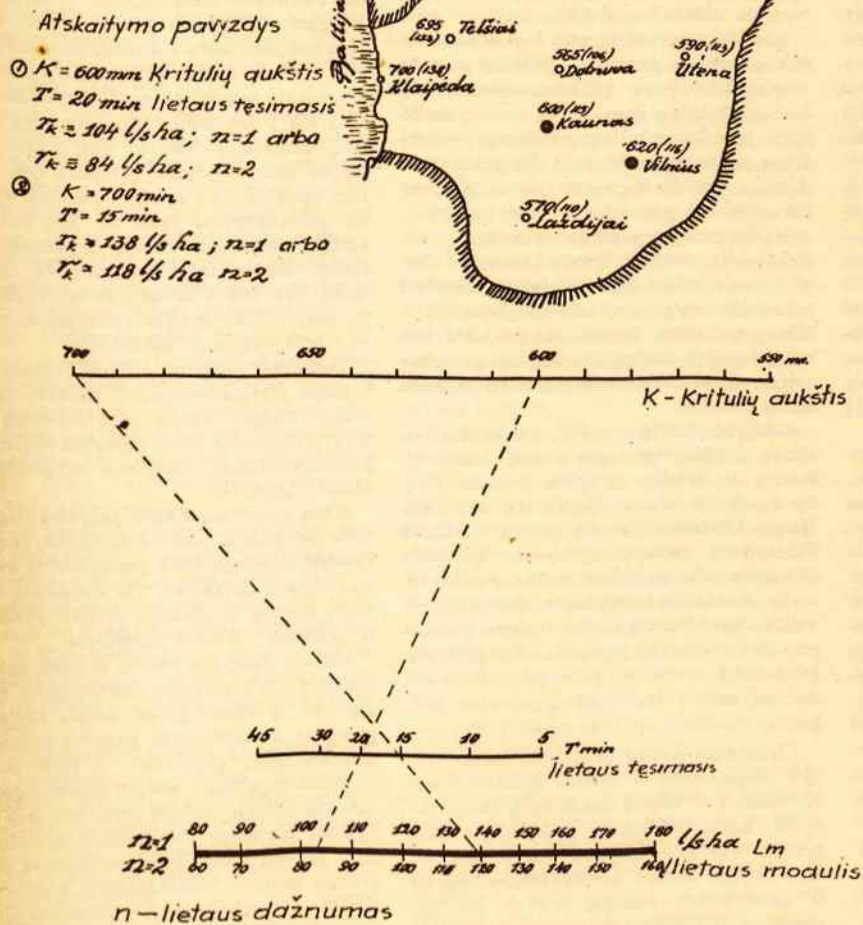 Atskaitymo pavyzdys
① K = 600mm Kritulių aukštis
T = 20 min lietaus tęsimasis
r_k ≅ 104 l/s ha; n=1 arba
r_k ≅ 84 l/s ha; n=2
② K = 700min
T = 15 min
r_k = 138 l/s ha; n=1 arba
r_k = 118 l/s ha n=2
Baltijas
695
Telšiai
700 (138)
Klaipeda
565 (106)
Dotnuva
590 (113)
Utena
600 (115)
Kaunas
620 (116)
Vilnius
570 (110)
Lazdijai
700 650 600 550 mm.
K - Kritulių aukštis
45 30 20 15 10 5 T min
lietaus tęsimasis
n=1 80 90 100 110 120 130 140 150 160 170 180 l/s ha Lm
n=2 60 70 80 90 100 110 120 130 140 150 160 lietaus modulis
n — lietaus dažnumas